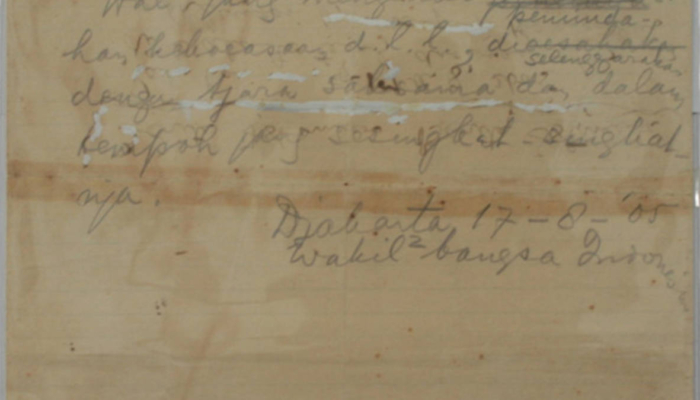 Hal² jang mengenai
peminda-
han kekoeasaan d.l.l., dioesahakan
selenggarakan
dengan tjara saksama dan dalam
tempoh jang sesingkat-singkat-
nja.
Djakarta 17-8-'05
Wakil² bangsa Indonesia